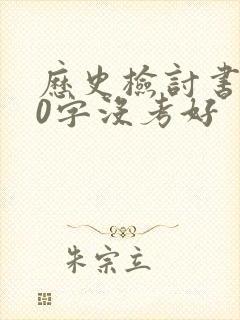 歷史檢討書
0字沒考好
朱宗立